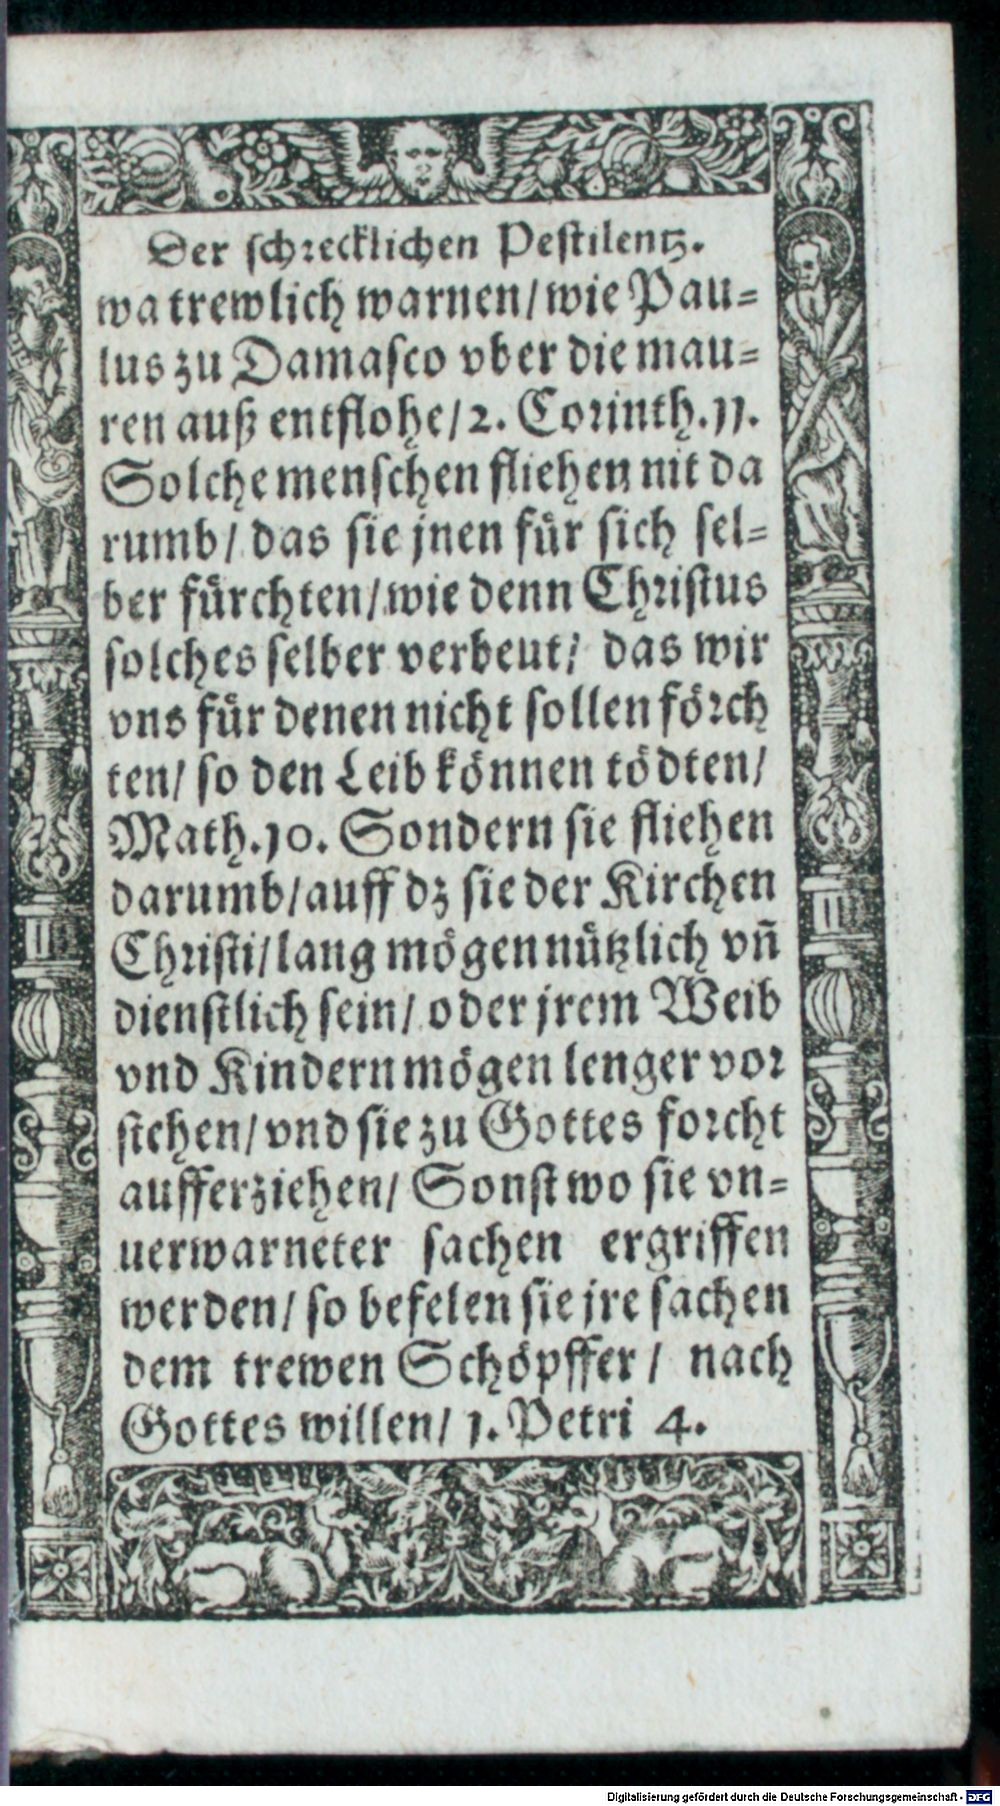 Der schrecklichen Pestilentz.
wa trewlich warnen/ wie Pau=
lus zu Damasco vber die mau=
ren auß entflohe/ 2. Corinth. 11.
Solche menschen fliehen nit da
rumb/ das sie jnen fuͤr sich sel=
ber fuͤrchten/ wie denn Christus
solches selber verbeut/ das wir
vns fuͤr denen nicht sollen foͤrch
ten/ so den Leib koͤnnen toͤdten/
Math. 10. Sondern sie fliehen
darumb/ auff dz sie der Kirchen
Christi/ lang moͤgen nuͤtzlich vñ
dienstlich sein/ oder jrem Weib
vnd Kindern moͤgen lenger vor
stehen/ vnd sie zu Gottes forcht
aufferziehen/ Sonst wo sie vn=
uerwarneter sachen ergriffen
werden/ so befelen sie jre sachen
dem trewen Schoͤpffer/ nach
Gottes willen/ 1. Petri 4.
Digitalisierung gefördert durch die Deutsche Forschungsgemeinschaft - DFG